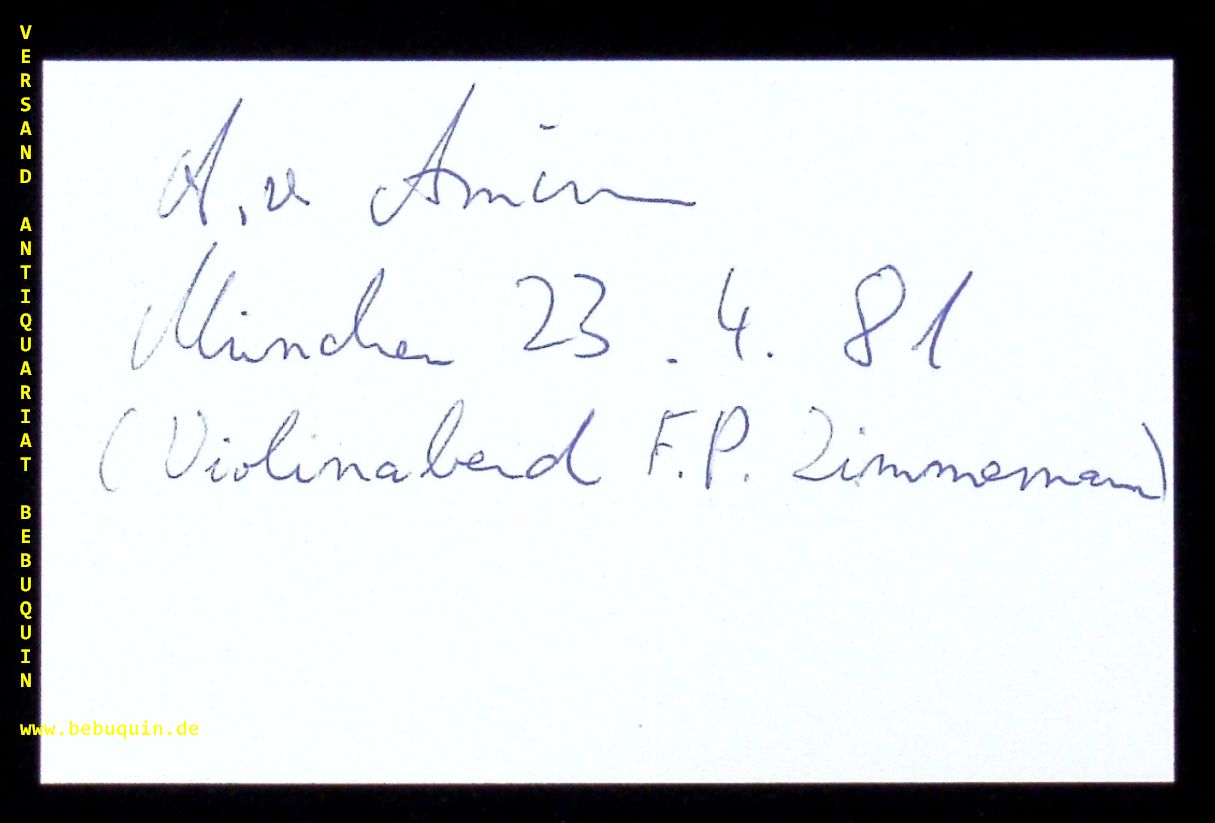 VERSAND ANTIQUARIAT BEBUQUIN
A. v. Arnim
München 23.4.81
(Violinabend F.P. Zimmermann)
www.bebuquin.de